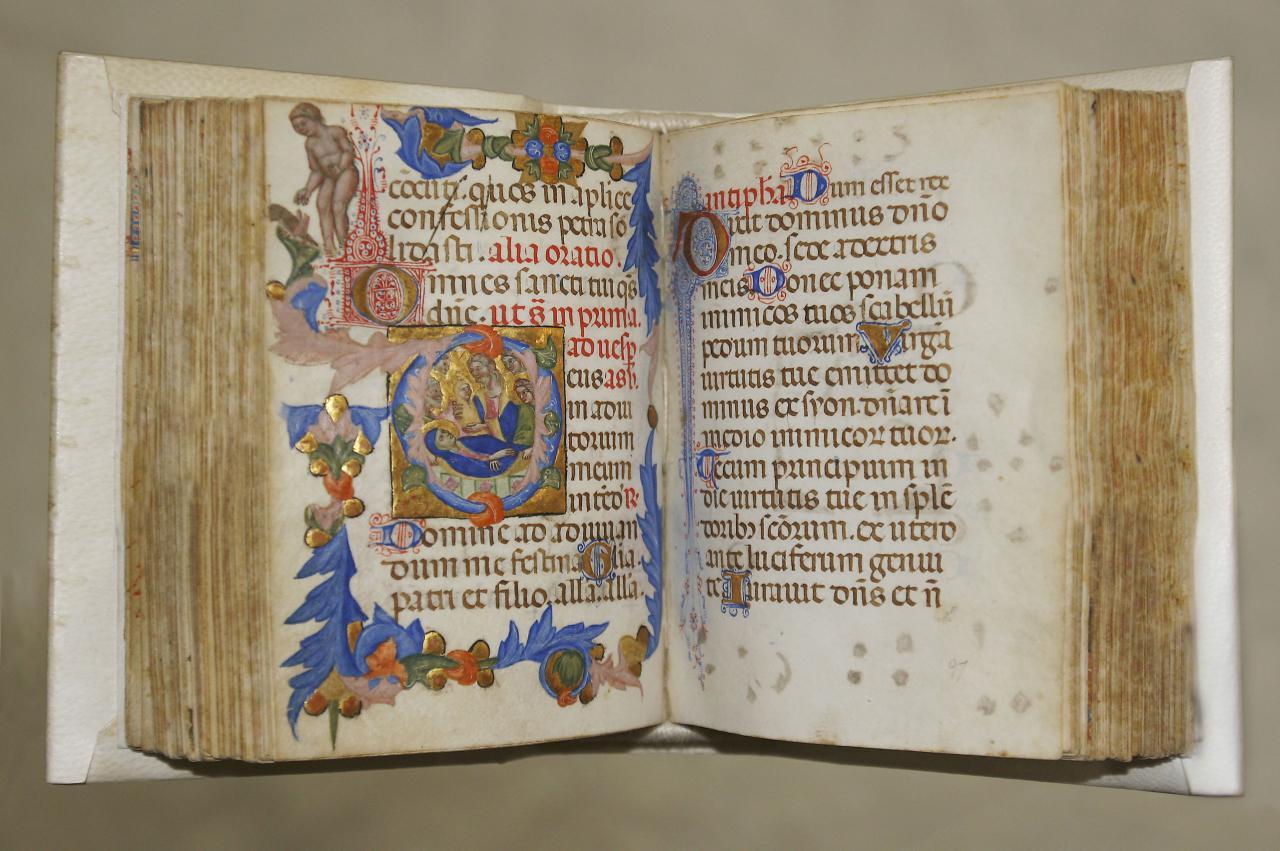 cōcutī. quos in aplice
confessionis petra so
lidasti. alia oratio.
Omnes sancti tui q̄s
dn̄e. ut s̄ in prima.
ad uesp̄
eus asb.
in adiu
torium
meum
in tēd R.
Domine ad adiuuan
dum me festina Glia.
patri et filio. alla. alla.
antipha Dum esset rex
Dixit dominus dn̄o
meo. sede a dextris
meis Donec ponam
inimicos tuos scabellū
pedum tuorum Virgā
uirtutis tue emittet do
minus ex syon. dn̄are ī
medio inimicor tuor.
Tecum principium in
die uirtutis tue in splē
doribȝ scōrum. ex utero
ante luciferum genui
te Iurauit dn̄s et n̄
97